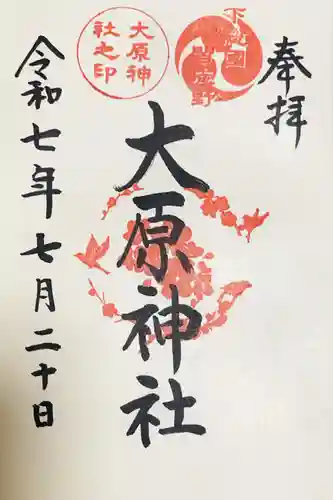 奉拝
大原神社
令和七年七月二十日
下総国
大原神
社之印